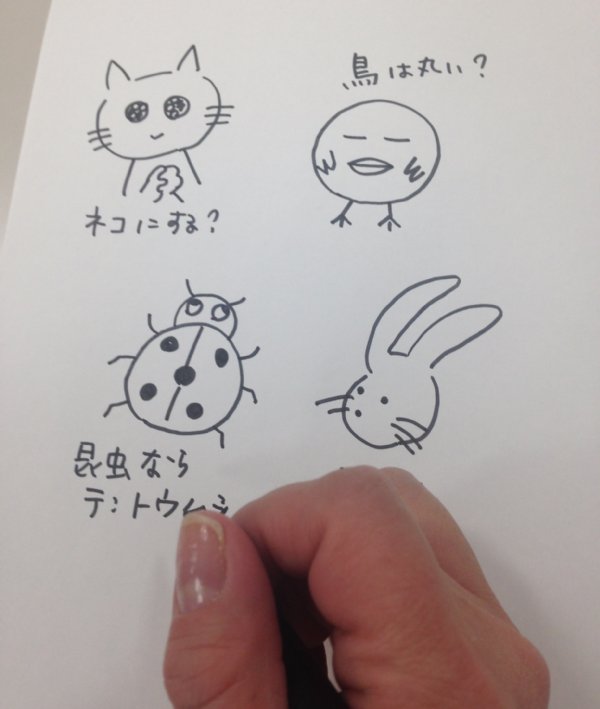 鳥は丸い?
ネコにする?
昆虫なら
テントウムシ